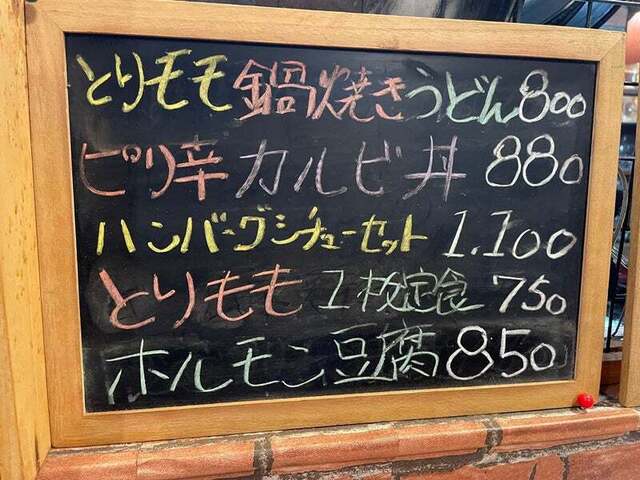 とりモモ鍋焼きうどん800
ピリ辛カルビ丼 880
ハンバーグシチューセット 1.100
とりもも1枚定食 750
ホルモン豆腐 850